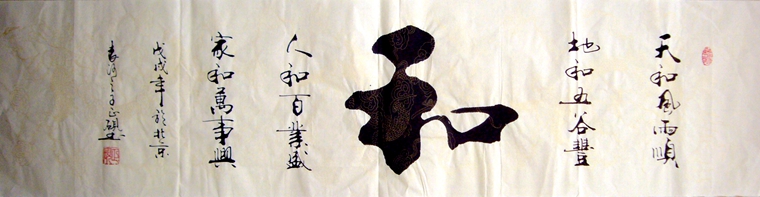 天和風雨順
地和五谷豐
和
人和百業盛
家和萬事興
戊戌年於北京